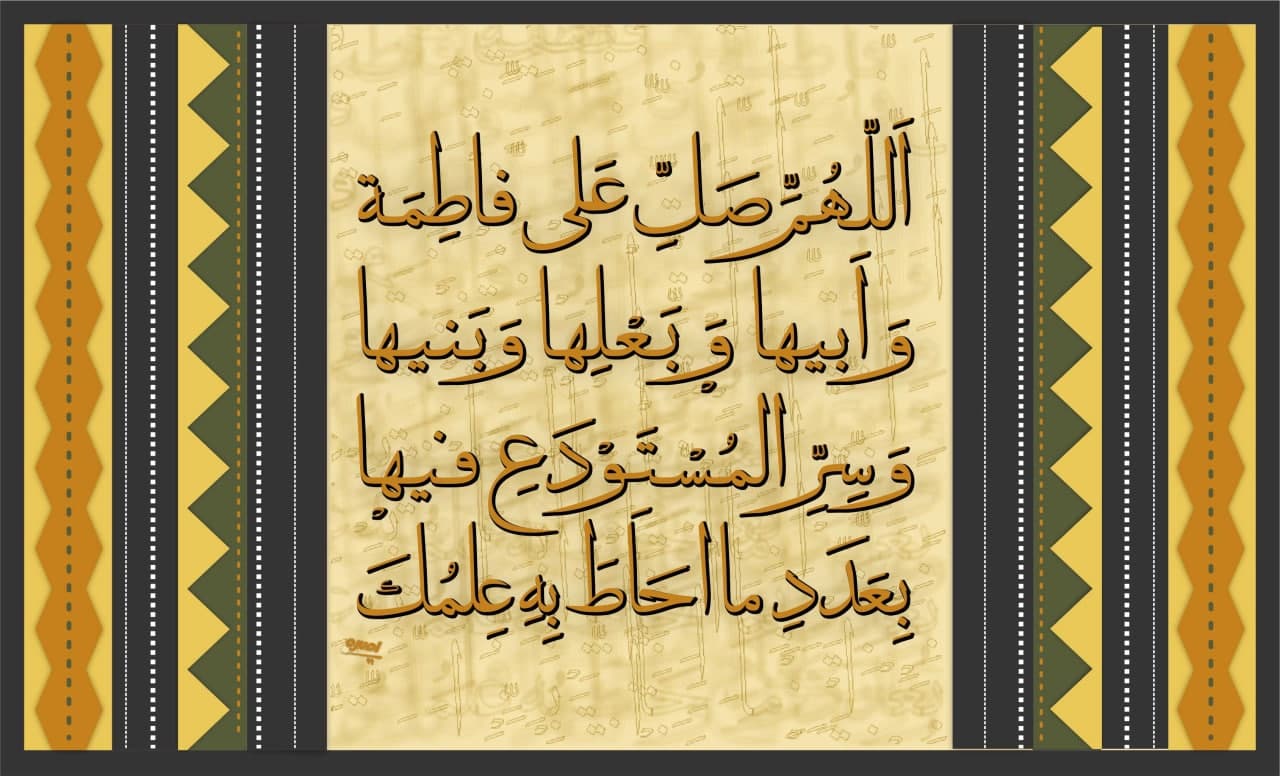 اَللّهُمَّ صَلِّ عَلی فاطِمَة
وَ اَبیها وَ بَعْلِها وَ بَنیها
وَ سِرِّ المُسْتَوْدَعِ فیها
بِعَدَدِ ما اَحَاطَ بِهِ عِلمُكَ